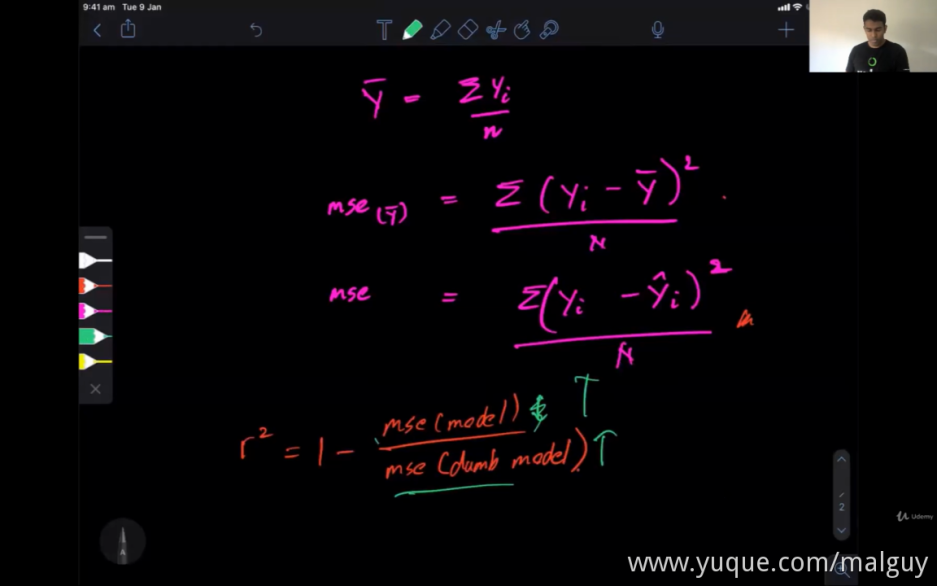 9:41 am Tue 9 Jan
T
Ȳ = Σ Yi / n
mse (Ȳ) = Σ (Yi - Ȳ)² / N
mse = Σ(Yi - Ŷi)² / N
r² = 1 - mse (model) / mse (dumb model)
2
A
Udemy
www.yuque.com/malguy